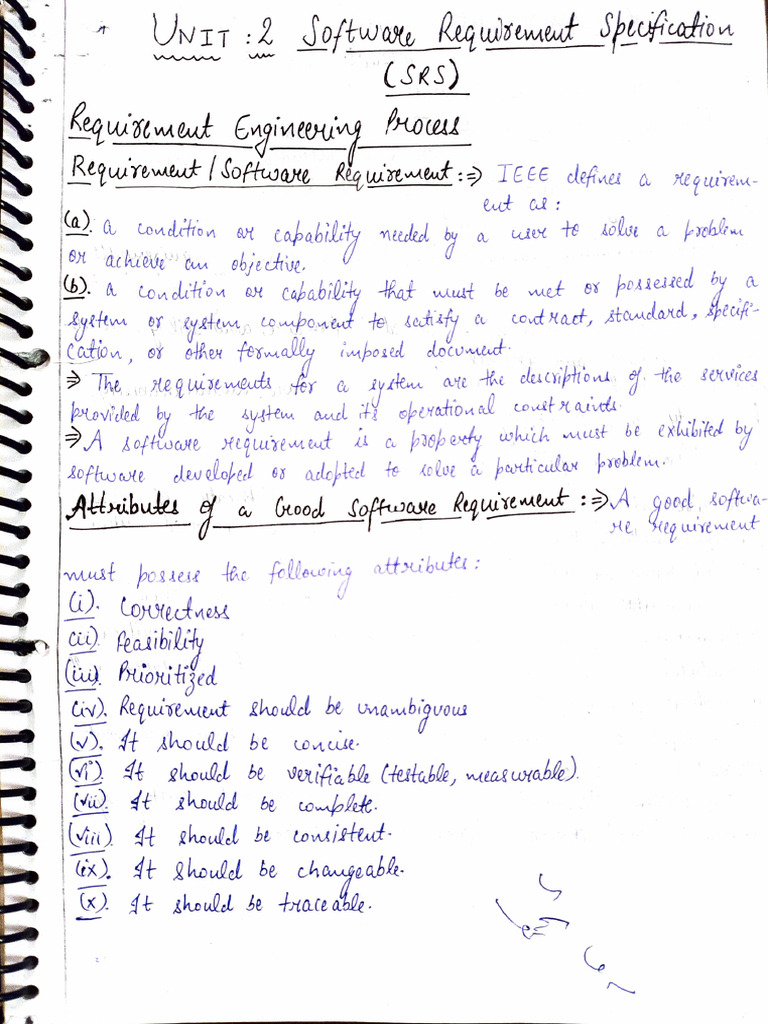 UNIT : 2 Software Requirement Specification
(SRS)
Requirement Engineering Process
Requirement / Software Requirement :⇒ IEEE defines a requirem-
ent as :
(a). a condition or capability needed by a user to solve a problem
or achieve an objective.
(b). a condition or capability that must be met or possessed by a
system or system component to satisfy a contract, standard, specifi-
cation, or other formally imposed document.
⇒ The requirements for a system are the descriptions of the services
provided by the system and its operational constraints.
⇒ A software requirement is a property which must be exhibited by
software developed or adopted to solve a particular problem.
Attributes of a Good Software Requirement :⇒ A good softwa-
re requirement
must possess the following attributes :
(i). Correctness
(ii) Feasibility
(iii). Prioritized
(iv). Requirement should be unambiguous
(v). It should be concise.
(vi). It should be verifiable (testable, measurable).
(vii). It should be complete.
(viii). It should be consistent.
(ix). It should be changeable.
(x). It should be traceable.